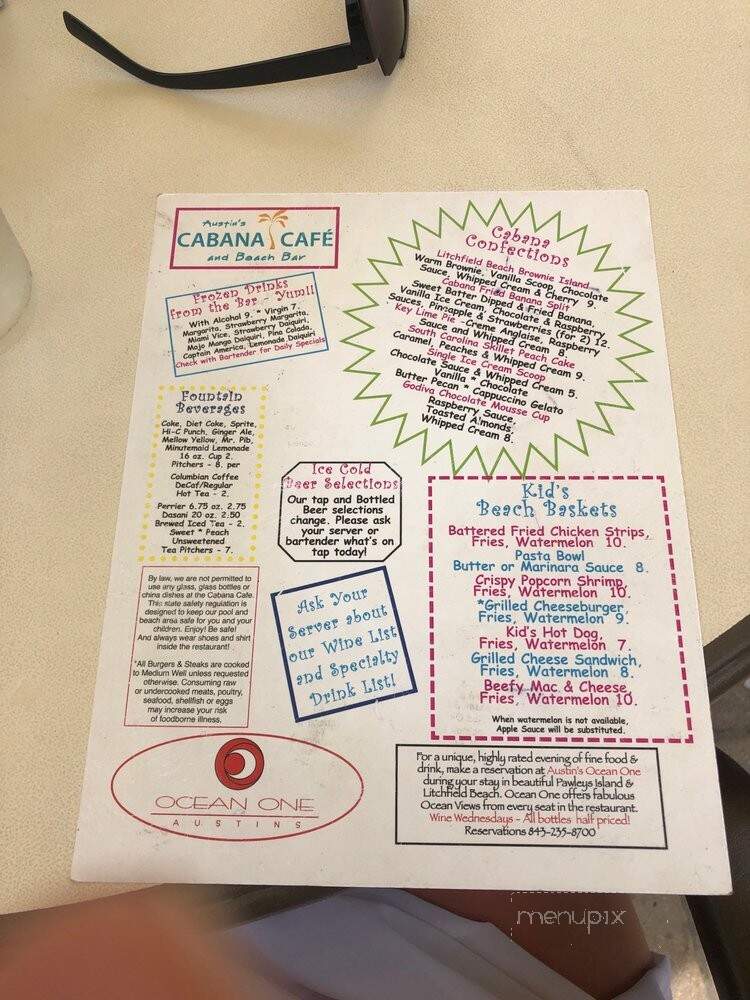 Austin's
CABANA CAFÉ
and Beach Bar
Frozen Drinks
from the Bar - Yum!!
With Alcohol 9. * Virgin 7.
Margarita, Strawberry Margarita,
Miami Vice, Strawberry Daiquiri,
Mojo Mango Daiquiri, Pina Colada,
Captain America, Lemonade Daiquiri
Check with Bartender for Daily Specials
Cabana
Confections
Litchfield Beach Brownie Island
Warm Brownie, Vanilla Scoop, Chocolate
Sauce, Whipped Cream & Cherry 9.
Cabana Fried Banana Split
Sweet Batter Dipped & Fried Banana,
Vanilla Ice Cream, Chocolate & Raspberry
Sauces, Pineapple & Strawberries (for 2) 12.
Key Lime Pie -Creme Anglaise, Raspberry
Sauce and Whipped Cream 8.
South Carolina Skillet Peach Cake
Caramel, Peaches & Whipped Cream 9.
Single Ice Cream Scoop
Chocolate Sauce & Whipped Cream 5.
Vanilla * Chocolate
Butter Pecan * Cappuccino Gelato
Godiva Chocolate Mousse Cup
Raspberry Sauce,
Toasted Almonds,
Whipped Cream 8.
Fountain
Beverages
Coke, Diet Coke, Sprite,
Hi-C Punch, Ginger Ale,
Mellow Yellow, Mr. Pib,
Minutemaid Lemonade
16 oz. Cup 2.
Pitchers - 8. per
Columbian Coffee
DeCaf/Regular
Hot Tea - 2.
Perrier 6.75 oz. 2.75
Dasani 20 oz. 2.50
Brewed Iced Tea - 2.
Sweet * Peach
Unsweetened
Tea Pitchers - 7.
Ice Cold
Beer Selections
Our tap and Bottled
Beer selections
change. Please ask
your server or
bartender what's on
tap today!
Kid's
Beach Baskets
Battered Fried Chicken Strips,
Fries, Watermelon 10.
Pasta Bowl
Butter or Marinara Sauce 8.
Crispy Popcorn Shrimp,
Fries, Watermelon 10.
*Grilled Cheeseburger,
Fries, Watermelon 9.
Kid's Hot Dog,
Fries, Watermelon 7.
Grilled Cheese Sandwich,
Fries, Watermelon 8.
Beefy Mac & Cheese,
Fries, Watermelon 10.
When watermelon is not available,
Apple Sauce will be substituted.
By law, we are not permitted to
use any glass, glass bottles or
china dishes at the Cabana Cafe.
This state safety regulation is
designed to keep our pool and
beach area safe for you and your
children. Enjoy! Be safe!
And always wear shoes and shirt
inside the restaurant!
*All Burgers & Steaks are cooked
to Medium Well unless requested
otherwise. Consuming raw
or undercooked meats, poultry,
seafood, shellfish or eggs
may increase your risk
of foodborne illness.
Ask Your
Server about
our Wine List
and Specialty
Drink List!
OCEAN ONE
AUSTINS
For a unique, highly rated evening of fine food &
drink, make a reservation at Austin's Ocean One
during your stay in beautiful Pawleys Island &
Litchfield Beach. Ocean One offers fabulous
Ocean Views from every seat in the restaurant.
Wine Wednesdays - All bottles half priced!
Reservations 843-235-8700
menupix